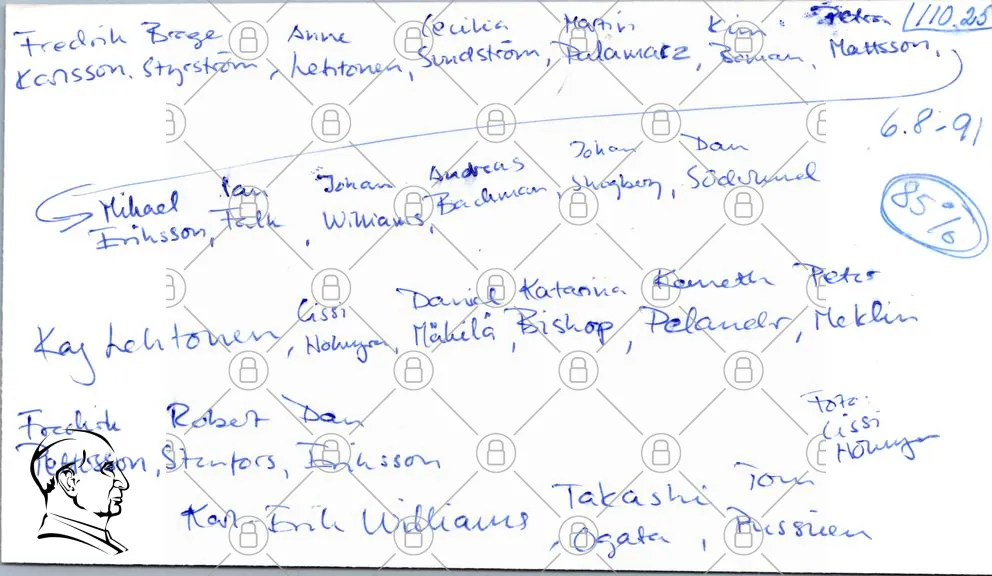 Fredrik Brage Anne Cecilia Martin Kim Peter 110.25
Karlsson, Styrström, Lehtonen, Sundström, Palamarz, Boman, Mattsson,
6.8-91
Mikael Ian Johan Andreas Johan Dan
Eriksson, Falk, Williams, Backman, Skogberg, Söderlund
85%
Daniel Katarina Kenneth Peter
Kaj Lehtonen, Cissi Mäkelä, Bishop, Pelander, Meklin
Fredrik Robert Dan
Pettersson, Stenfors, Eriksson
Foto:
Cissi
Karl-Erik Williams, Takashi Tom
Ogata,